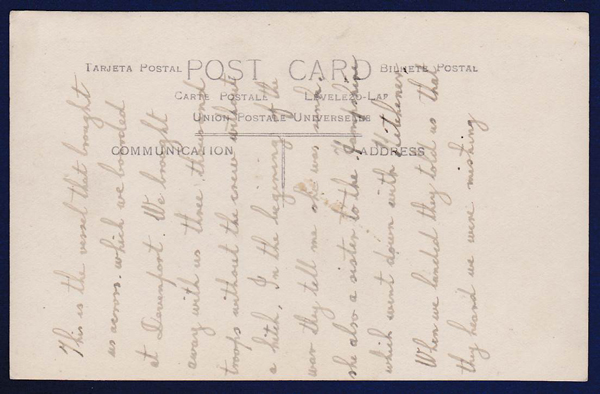 TARJETA POSTAL POST CARD BILLETE POSTAL
CARTE POSTALE LEVELEZO-LAP
UNION POSTALE UNIVERSELLE
COMMUNICATION ADDRESS
This is the vessel that brought
us across. which we boarded
at Devenport. We brought
away with us three thousand
troops without the crew without
a hitch. In the beginning of the
war they tell me she was sunk.
she also a sister to the Hampshire
which went down with Kitchener.
When we landed they told us that
they heard we were missing